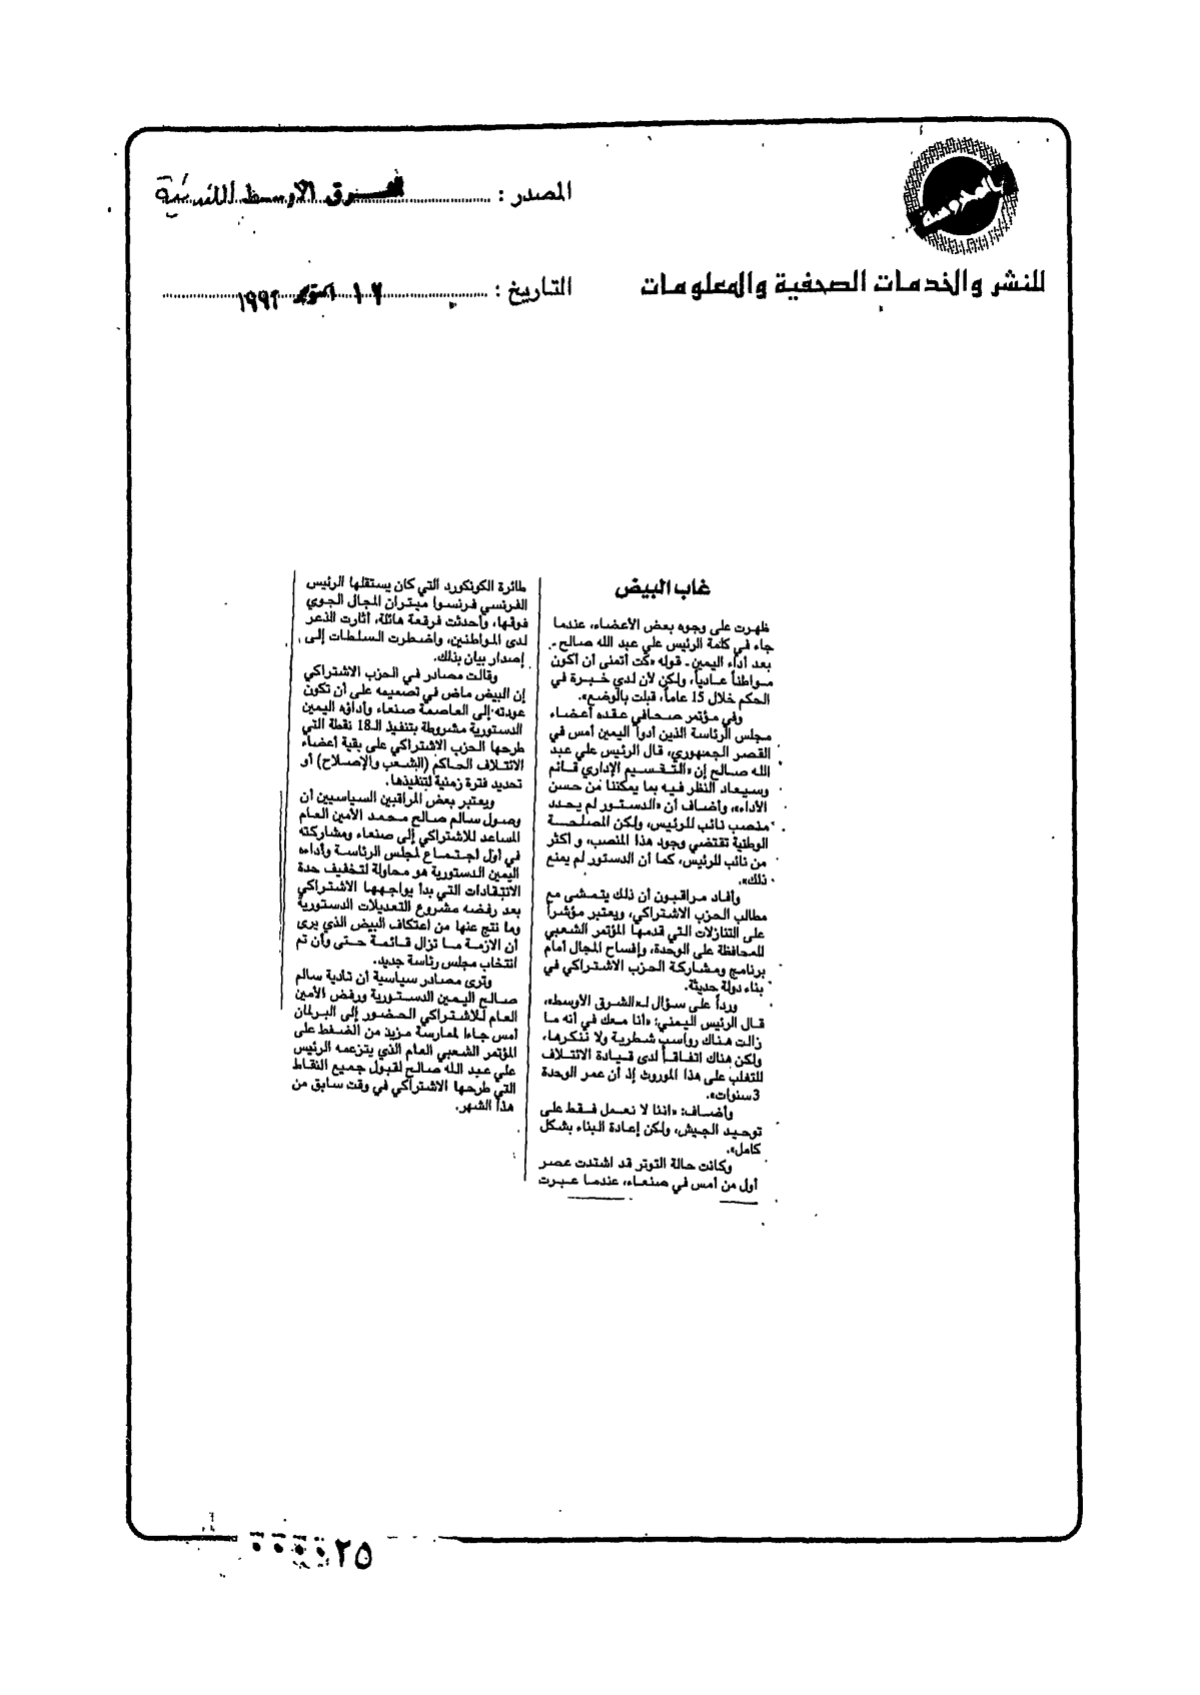 المحروسة
للنشر والخدمات الصحفية والمعلومات
المصدر : الشرق الأوسط اللندنية
التاريخ : ١٦ أكتوبر ١٩٩٣
غاب البيض
ظهرت على وجوه بعض الأعضاء، عندما
جاء في كلمة الرئيس علي عبد الله صالح -
بعد أداء اليمين - قوله «كنت أتمنى أن أكون
مواطناً عادياً، ولكن لأن لدي خبرة في
الحكم خلال 15 عاماً، قبلت بالوضع».
وفي مؤتمر صحافي عقده أعضاء
مجلس الرئاسة الذين أدوا اليمين أمس في
القصر الجمهوري، قال الرئيس علي عبد
الله صالح إن «التقسيم الإداري قائم
وسيعاد النظر فيه بما يمكننا من حسن
الأداء»، وأضاف أن «الدستور لم يحدد
منصب نائب للرئيس، ولكن المصلحة
الوطنية تقتضي وجود هذا المنصب، و اكثر
من نائب للرئيس، كما أن الدستور لم يمنع
ذلك».
وأفاد مراقبون أن ذلك يتمشى مع
مطالب الحزب الاشتراكي، ويعتبر مؤشراً
على التنازلات التي قدمها المؤتمر الشعبي
للمحافظة على الوحدة، وإفساح المجال أمام
برنامج ومشاركة الحزب الاشتراكي في
بناء دولة حديثة.
ورداً على سؤال لـ«الشرق الأوسط»،
قال الرئيس اليمني: «أنا معك في أنه ما
زالت هناك رواسب شطرية ولا ننكرها،
ولكن هناك اتفاقاً لدى قيادة الائتلاف
للتغلب على هذا الموروث إذ أن عمر الوحدة
3 سنوات».
وأضاف: «اننا لا نعمل فقط على
توحيد الجيش، ولكن إعادة البناء بشكل
كامل».
وكانت حالة التوتر قد اشتدت عصر
أول من أمس في صنعاء، عندما عبرت
طائرة الكونكورد التي كان يستقلها الرئيس
الفرنسي فرنسوا ميتران المجال الجوي
فوقها، وأحدثت فرقعة هائلة، أثارت الذعر
لدى المواطنين، واضطرت السلطات إلى
إصدار بيان بذلك.
وقالت مصادر في الحزب الاشتراكي
إن البيض ماض في تصميمه على أن تكون
عودته إلى العاصمة صنعاء وأداؤه اليمين
الدستورية مشروطة بتنفيذ الـ18 نقطة التي
طرحها الحزب الاشتراكي على بقية أعضاء
الائتلاف الحاكم (الشعب والإصلاح) أو
تحديد فترة زمنية لتنفيذها.
ويعتبر بعض المراقبين السياسيين أن
وصول سالم صالح محمد الأمين العام
المساعد للاشتراكي إلى صنعاء ومشاركته
في أول اجتماع لمجلس الرئاسة وأداءه
اليمين الدستورية هو محاولة لتخفيف حدة
الانتقادات التي بدأ يواجهها الاشتراكي
بعد رفضه مشروع التعديلات الدستورية
وما نتج عنها من اعتكاف البيض الذي يرى
أن الازمة ما تزال قائمة حتى وأن تم
انتخاب مجلس رئاسة جديد.
وترى مصادر سياسية أن تادية سالم
صالح اليمين الدستورية ورفض الأمين
العام للاشتراكي الحضور إلى البرلمان
أمس جاءا لممارسة مزيد من الضغط على
المؤتمر الشعبي العام الذي يتزعمه الرئيس
علي عبد الله صالح لقبول جميع النقاط
التي طرحها الاشتراكي في وقت سابق من
هذا الشهر.
٠٠٠٠٢٥